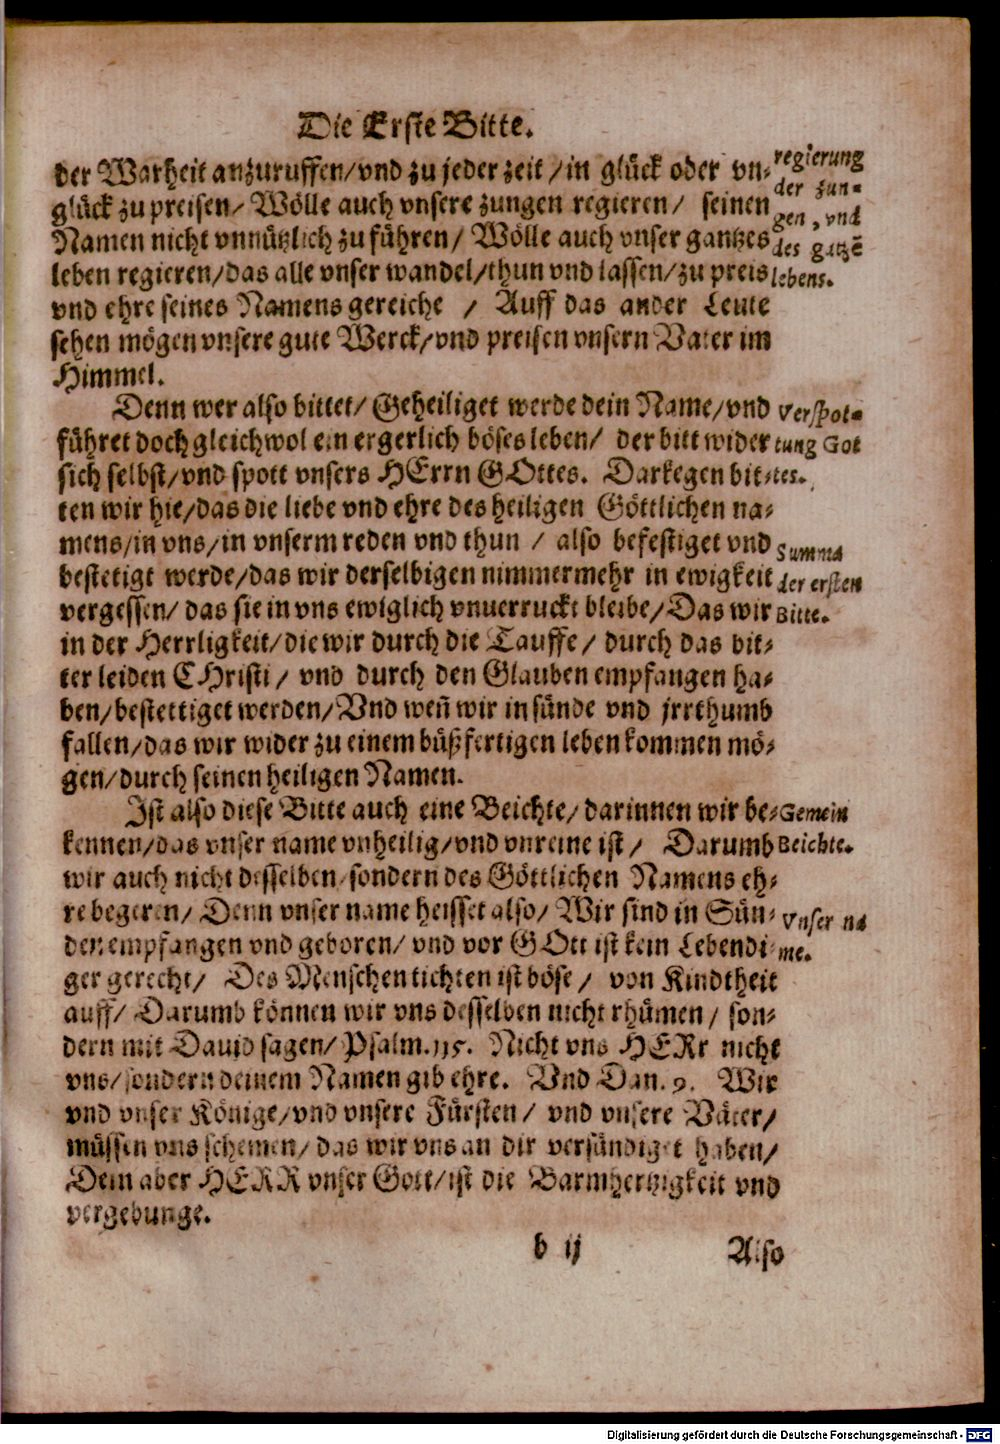 Die Erste Bitte.
der Warheit anzuruffen/vnd zu jeder zeit/in glück oder vn-
glück zu preisen/ Wölle auch vnsere zungen regieren/ seinen
Namen nicht vnnützlich zu führen/ Wölle auch vnser gantzes
leben regieren/das alle vnser wandel/thun vnd lassen/zu preis
vnd ehre seines Namens gereiche / Auff das ander Leute
sehen mögen vnsere gute Werck/vnd preisen vnsern Vater im
Himmel.
regierung
der zun-
gen, vnd
des gatzē
lebens.
Denn wer also bittet/ Geheiliget werde dein Name/vnd
führet doch gleichwol ein ergerlich böses leben/ der bitt wider
sich selbst/vnd spott vnsers HErrn GOttes. Darkegen bit-
ten wir hie/das die liebe vnd ehre des heiligen Göttlichen na-
mens/in vns/in vnserm reden vnd thun / also befestiget vnd
bestetigt werde/das wir derselbigen nimmermehr in ewigkeit
vergessen/ das sie in vns ewiglich vnuerruckt bleibe/Das wir
in der Herrligkeit/die wir durch die Tauffe/ durch das bit-
ter leiden CHristi/ vnd durch den Glauben empfangen ha-
ben/bestettiget werden/Vnd weñ wir in sünde vnd jrrthumb
fallen/das wir wider zu einem büßfertigen leben kommen mö-
gen/durch seinen heiligen Namen.
Verspot-
tung Got
tes.
Summa
der ersten
Bitte.
Ist also diese Bitte auch eine Beichte/darinnen wir be-
kennen/das vnser name vnheilig/vnd vnreine ist/ Darumb
wir auch nicht desselben/sondern des Göttlichen Namens eh-
re begeren/ Denn vnser name heisset also/ Wir sind in Sün-
den empfangen vnd geboren/ vnd vor GOtt ist kein Lebendi-
ger gerecht/ Des Menschen tichten ist böse/ von Kindtheit
auff/ Darumb können wir vns desselben nicht rhümen/ son-
dern mit Dauid sagen/ Psalm.115. Nicht vns HERr nicht
vns/sondern deinem Namen gib ehre. Vnd Dan. 9. Wir
vnd vnser Könige/vnd vnsere Fürsten/ vnd vnsere Väter/
müssen vns schemen/ das wir vns an dir versündiget haben/
Dein aber HERR vnser Gott/ist die Barmhertzigkeit vnd
vergebunge.
Gemein
Beichte.
Vnser na
me.
b ij
Also
Digitalisierung gefördert durch die Deutsche Forschungsgemeinschaft - DFG